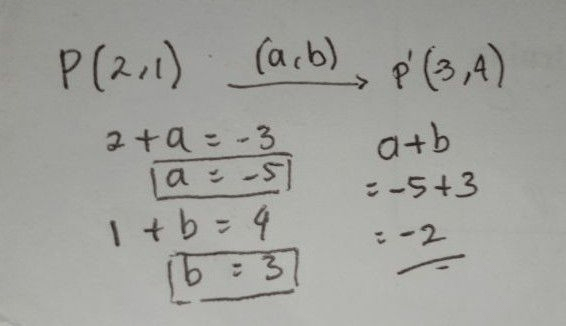 P(2,1) (a,b) → P'(3,4)
2 + a = -3
a = -5
1 + b = 4
b = 3
a+b
= -5+3
= -2